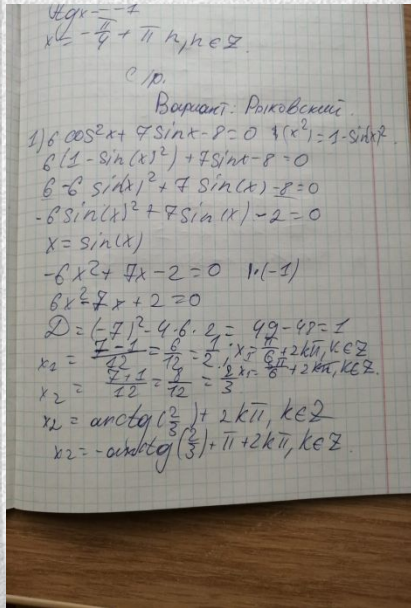 tgx = -1
x = -π/4 + πn, n∈Z.
С/р.
Вариант: Рыковский.
1) 6cos²x + 7sinx - 8 = 0 (x²) = 1 - sin(x)².
6(1 - sin(x)²) + 7sinx - 8 = 0
6 - 6 sin(x)² + 7 sin(x) - 8 = 0
-6 sin(x)² + 7 sin(x) - 2 = 0
x = sin(x)
-6x² + 7x - 2 = 0 |·(-1)
6x² - 7x + 2 = 0
D = (-7)² - 4·6·2 = 49 - 48 = 1
x₁ = 7-1/12 = 6/12 = 1/2; x = π/6 + 2kπ, k∈Z
x₂ = 7+1/12 = 8/12 = 2/3 x = 5π/6 + 2kπ, k∈Z.
x₂ = arctg(2/3) + 2kπ, k∈Z
x₂ = -arctg(2/3) + π + 2kπ, k∈Z.